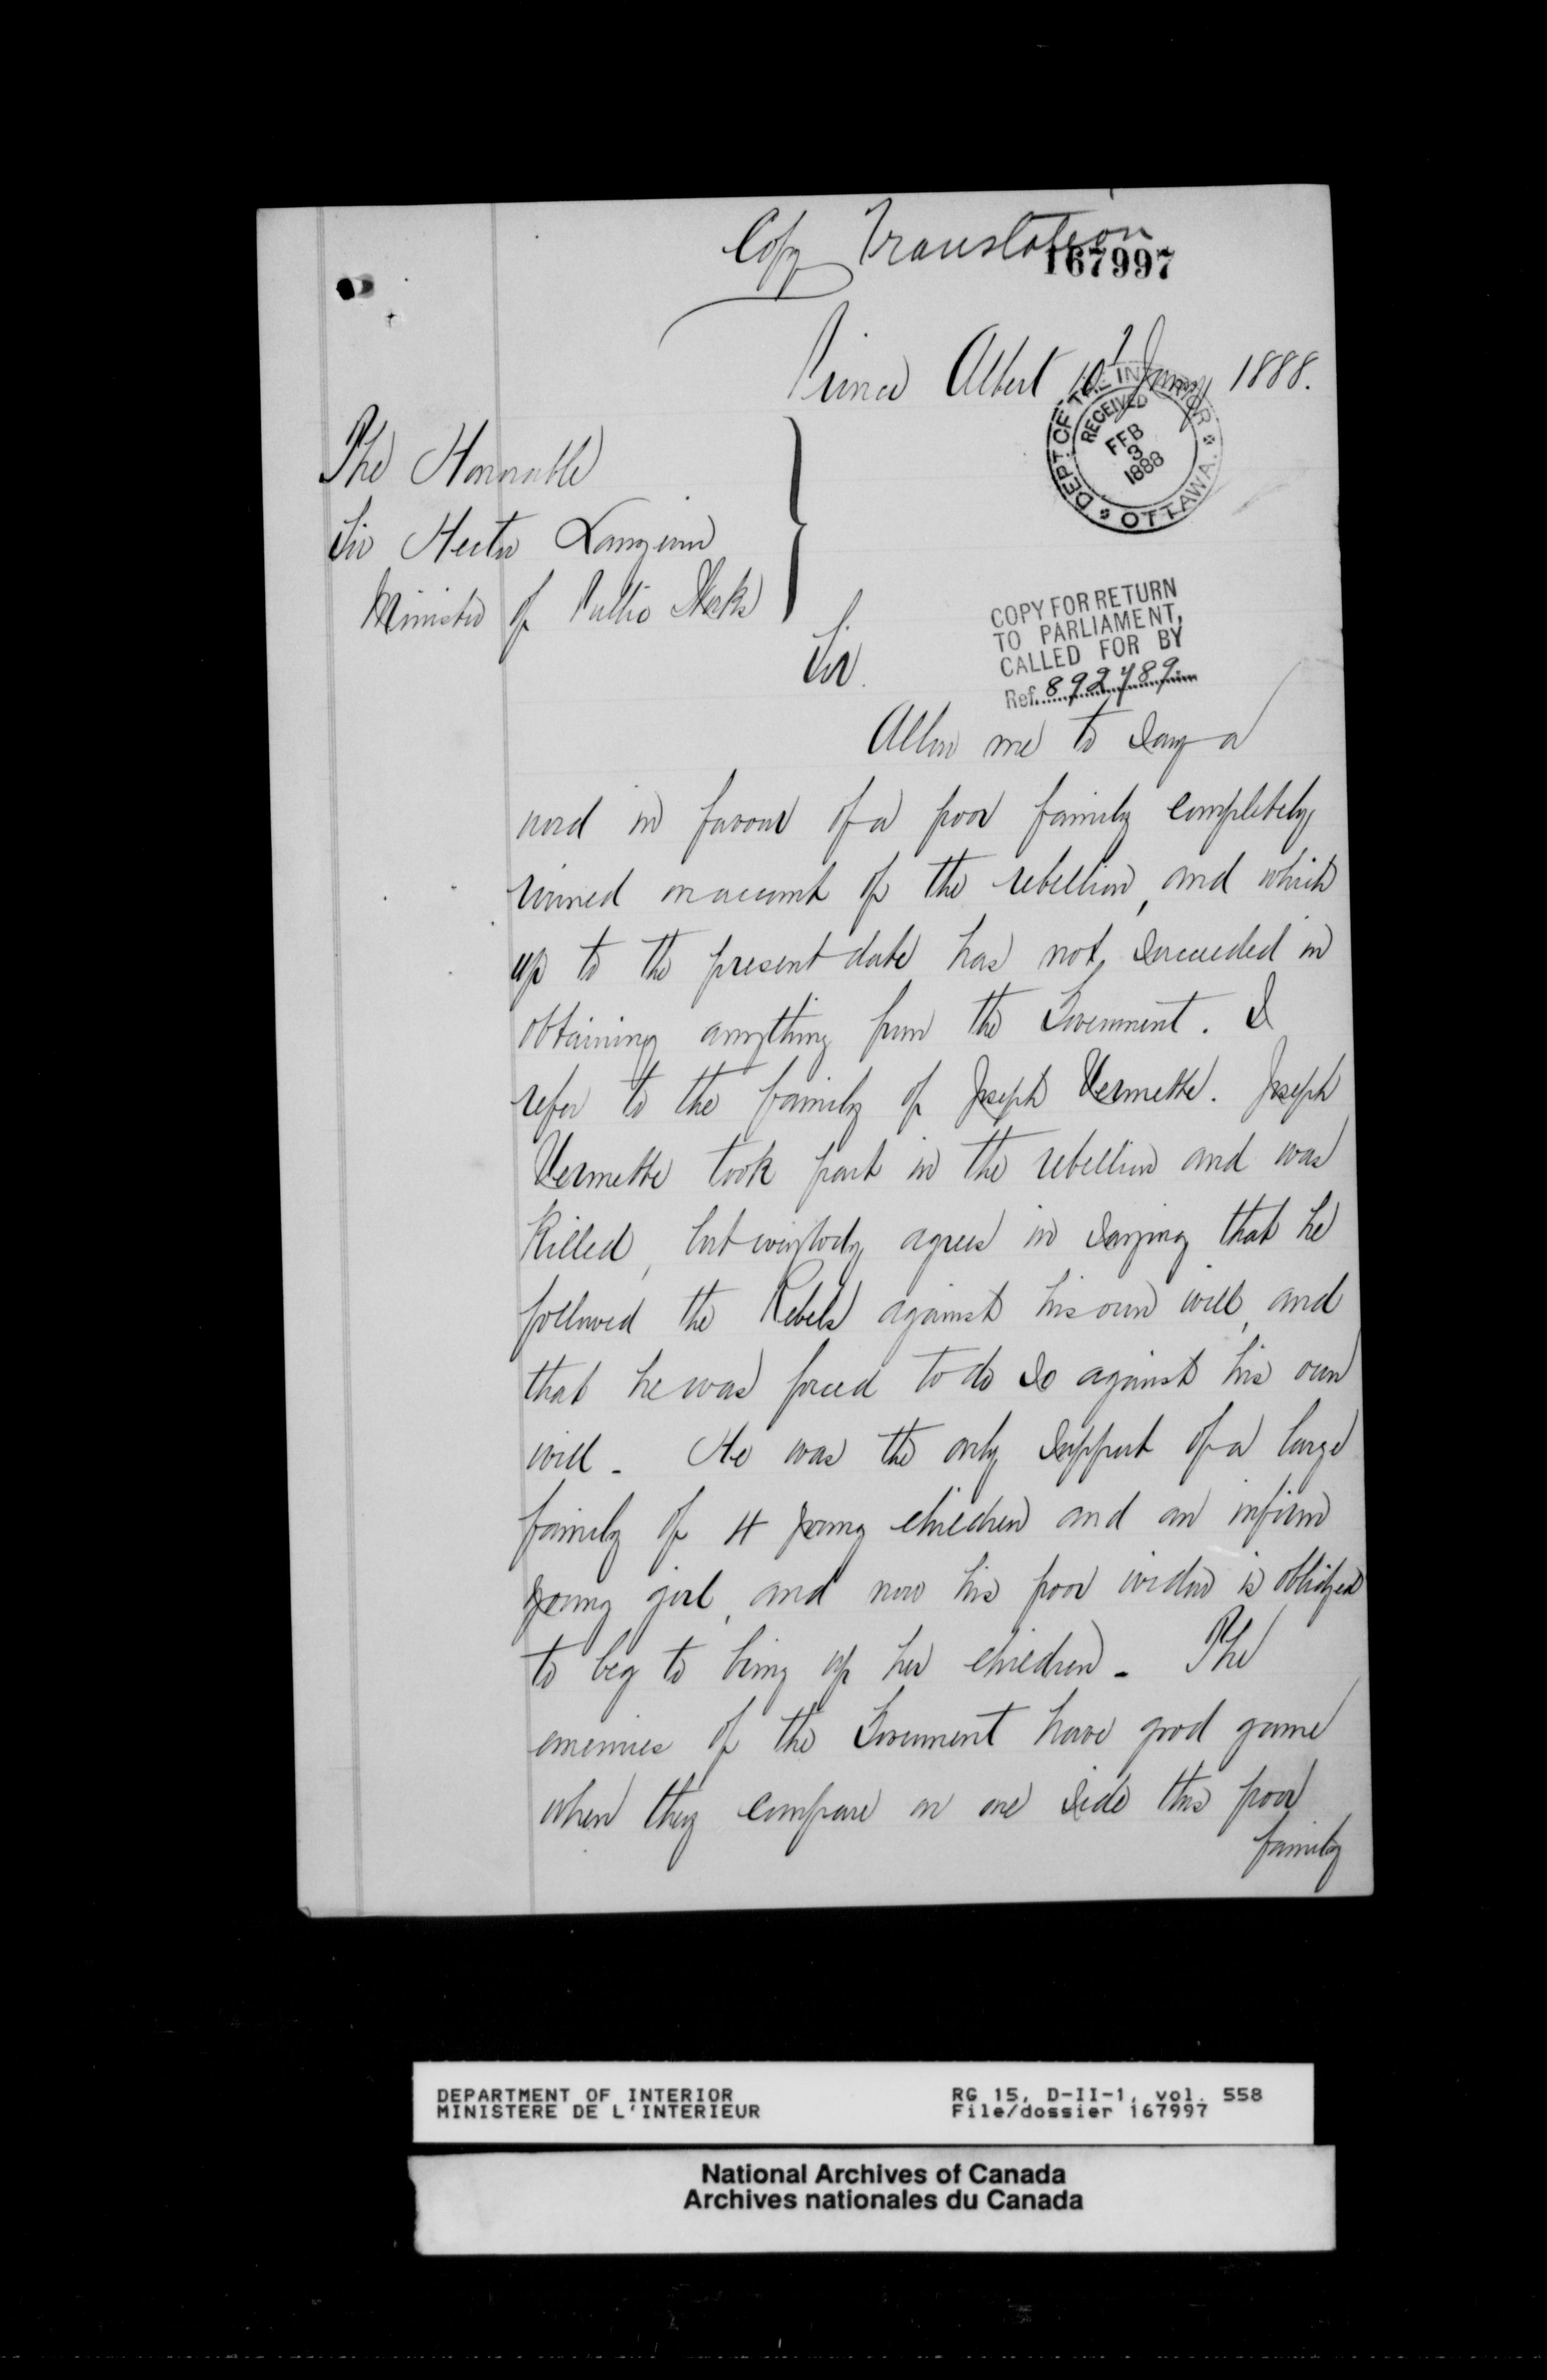 Copy Translation
167997
Prince Albert 10 Jany 1888.
DEPT. OF THE INTERIOR
RECEIVED
FEB
3
1888
OTTAWA.
The Honorable
Sir Hector Langevin
Minister of Public Works
COPY FOR RETURN
TO PARLIAMENT,
CALLED FOR BY
Ref. 892789
Sir.
Allow me to say a
word in favour of a poor family completely
ruined on account of the rebellion, and which
up to the present date has not succeeded in
obtaining anything from the Government. I
refer to the family of Joseph Vermette. Joseph
Vermette took part in the rebellion and was
Killed, but everybody agrees in saying that he
followed the Rebels against his own will, and
that he was forced to do so against his own
will - He was the only support of a large
family of 4 young children and an infirm
young girl, and now his poor widow is oblidged
to beg to bring up her children - The
enemies of the Government have good game
when they compare on one side this poor
family
DEPARTMENT OF INTERIOR
MINISTERE DE L'INTERIEUR
RG 15, D-II-1, vol. 558
File/dossier 167997
National Archives of Canada
Archives nationales du Canada